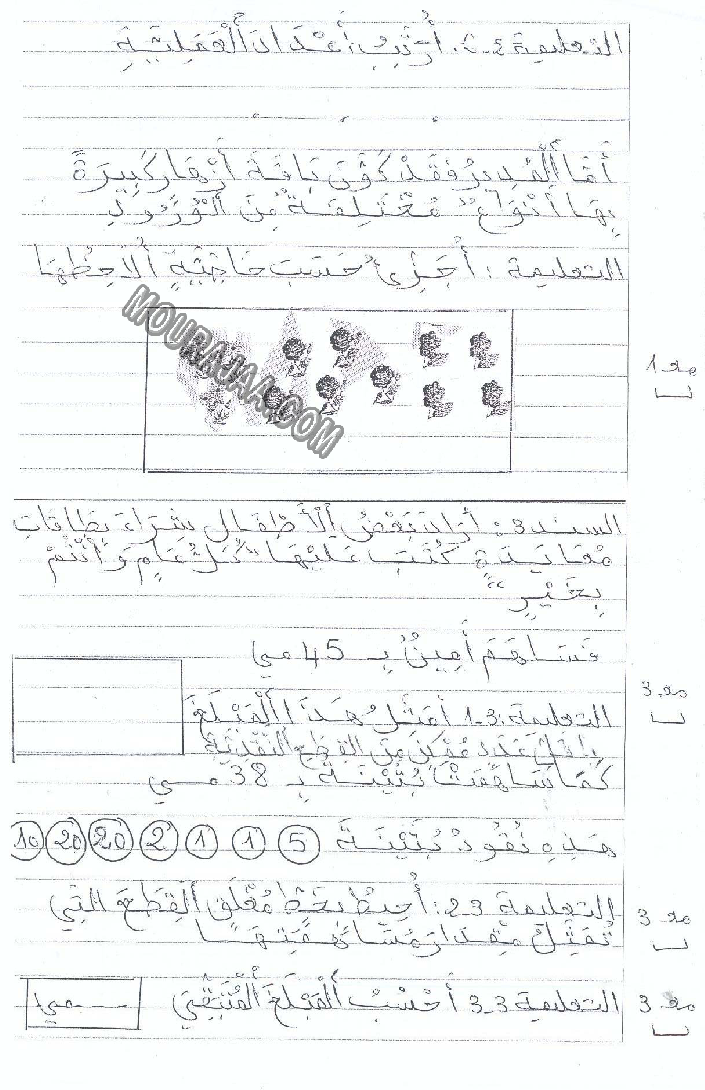 التعليمة 2-4: أُرَتِّبُ أَعْدَادَ الْعَمَلِيَّةِ
أَمَّا الْمُدِيرُ فَقَدْ كَوَّنَ بَاقَةَ أَزْهَارٍ كَبِيرَةً
بِهَا أَنْوَاعٌ مُخْتَلِفَةٌ مِنَ الْوُرُودِ
التعليمة : أُجَزِّئُ حَسَبَ خَاصِّيَّةٍ أُلَاحِظُهَا
MOURAJAA.COM
مع 1
السند 3: أَرَادَ بَعْضُ الْأَطْفَالِ شِرَاءَ بِطَاقَاتِ
مُعَايَدَةٍ كُتِبَ عَلَيْهَا "كُلُّ عَامٍ وَأَنْتُمْ
بِخَيْرٍ"
فَسَاهَمَ أَمِينٌ بِـ 45 مي
التعليمة 3-1 أُمَثِّلُ هَذَا الْمَبْلَغَ
مع 3
بِأَقَلِّ عَدَدٍ مُمْكِنٍ مِنَ الْقِطَعِ النَّقْدِيَّةِ
كَمَا سَاهَمَتْ بُثَيْنَةُ بِـ 38 مي
هَذِهِ نُقُودُ بُثَيْنَةَ 5 1 1 2 20 20 10
التعليمة 3-2: أُحِيطُ بِخَطٍّ مُغْلَقٍ الْقِطَعَ الَّتِي
مع 3
تُمَثِّلُ مِقْدَارَ مُسَاهَمَتِهَا
التعليمة 3-3 أَحْسُبُ الْمَبْلَغَ الْمُتَبَقِّيَ ....... مي
مع 3